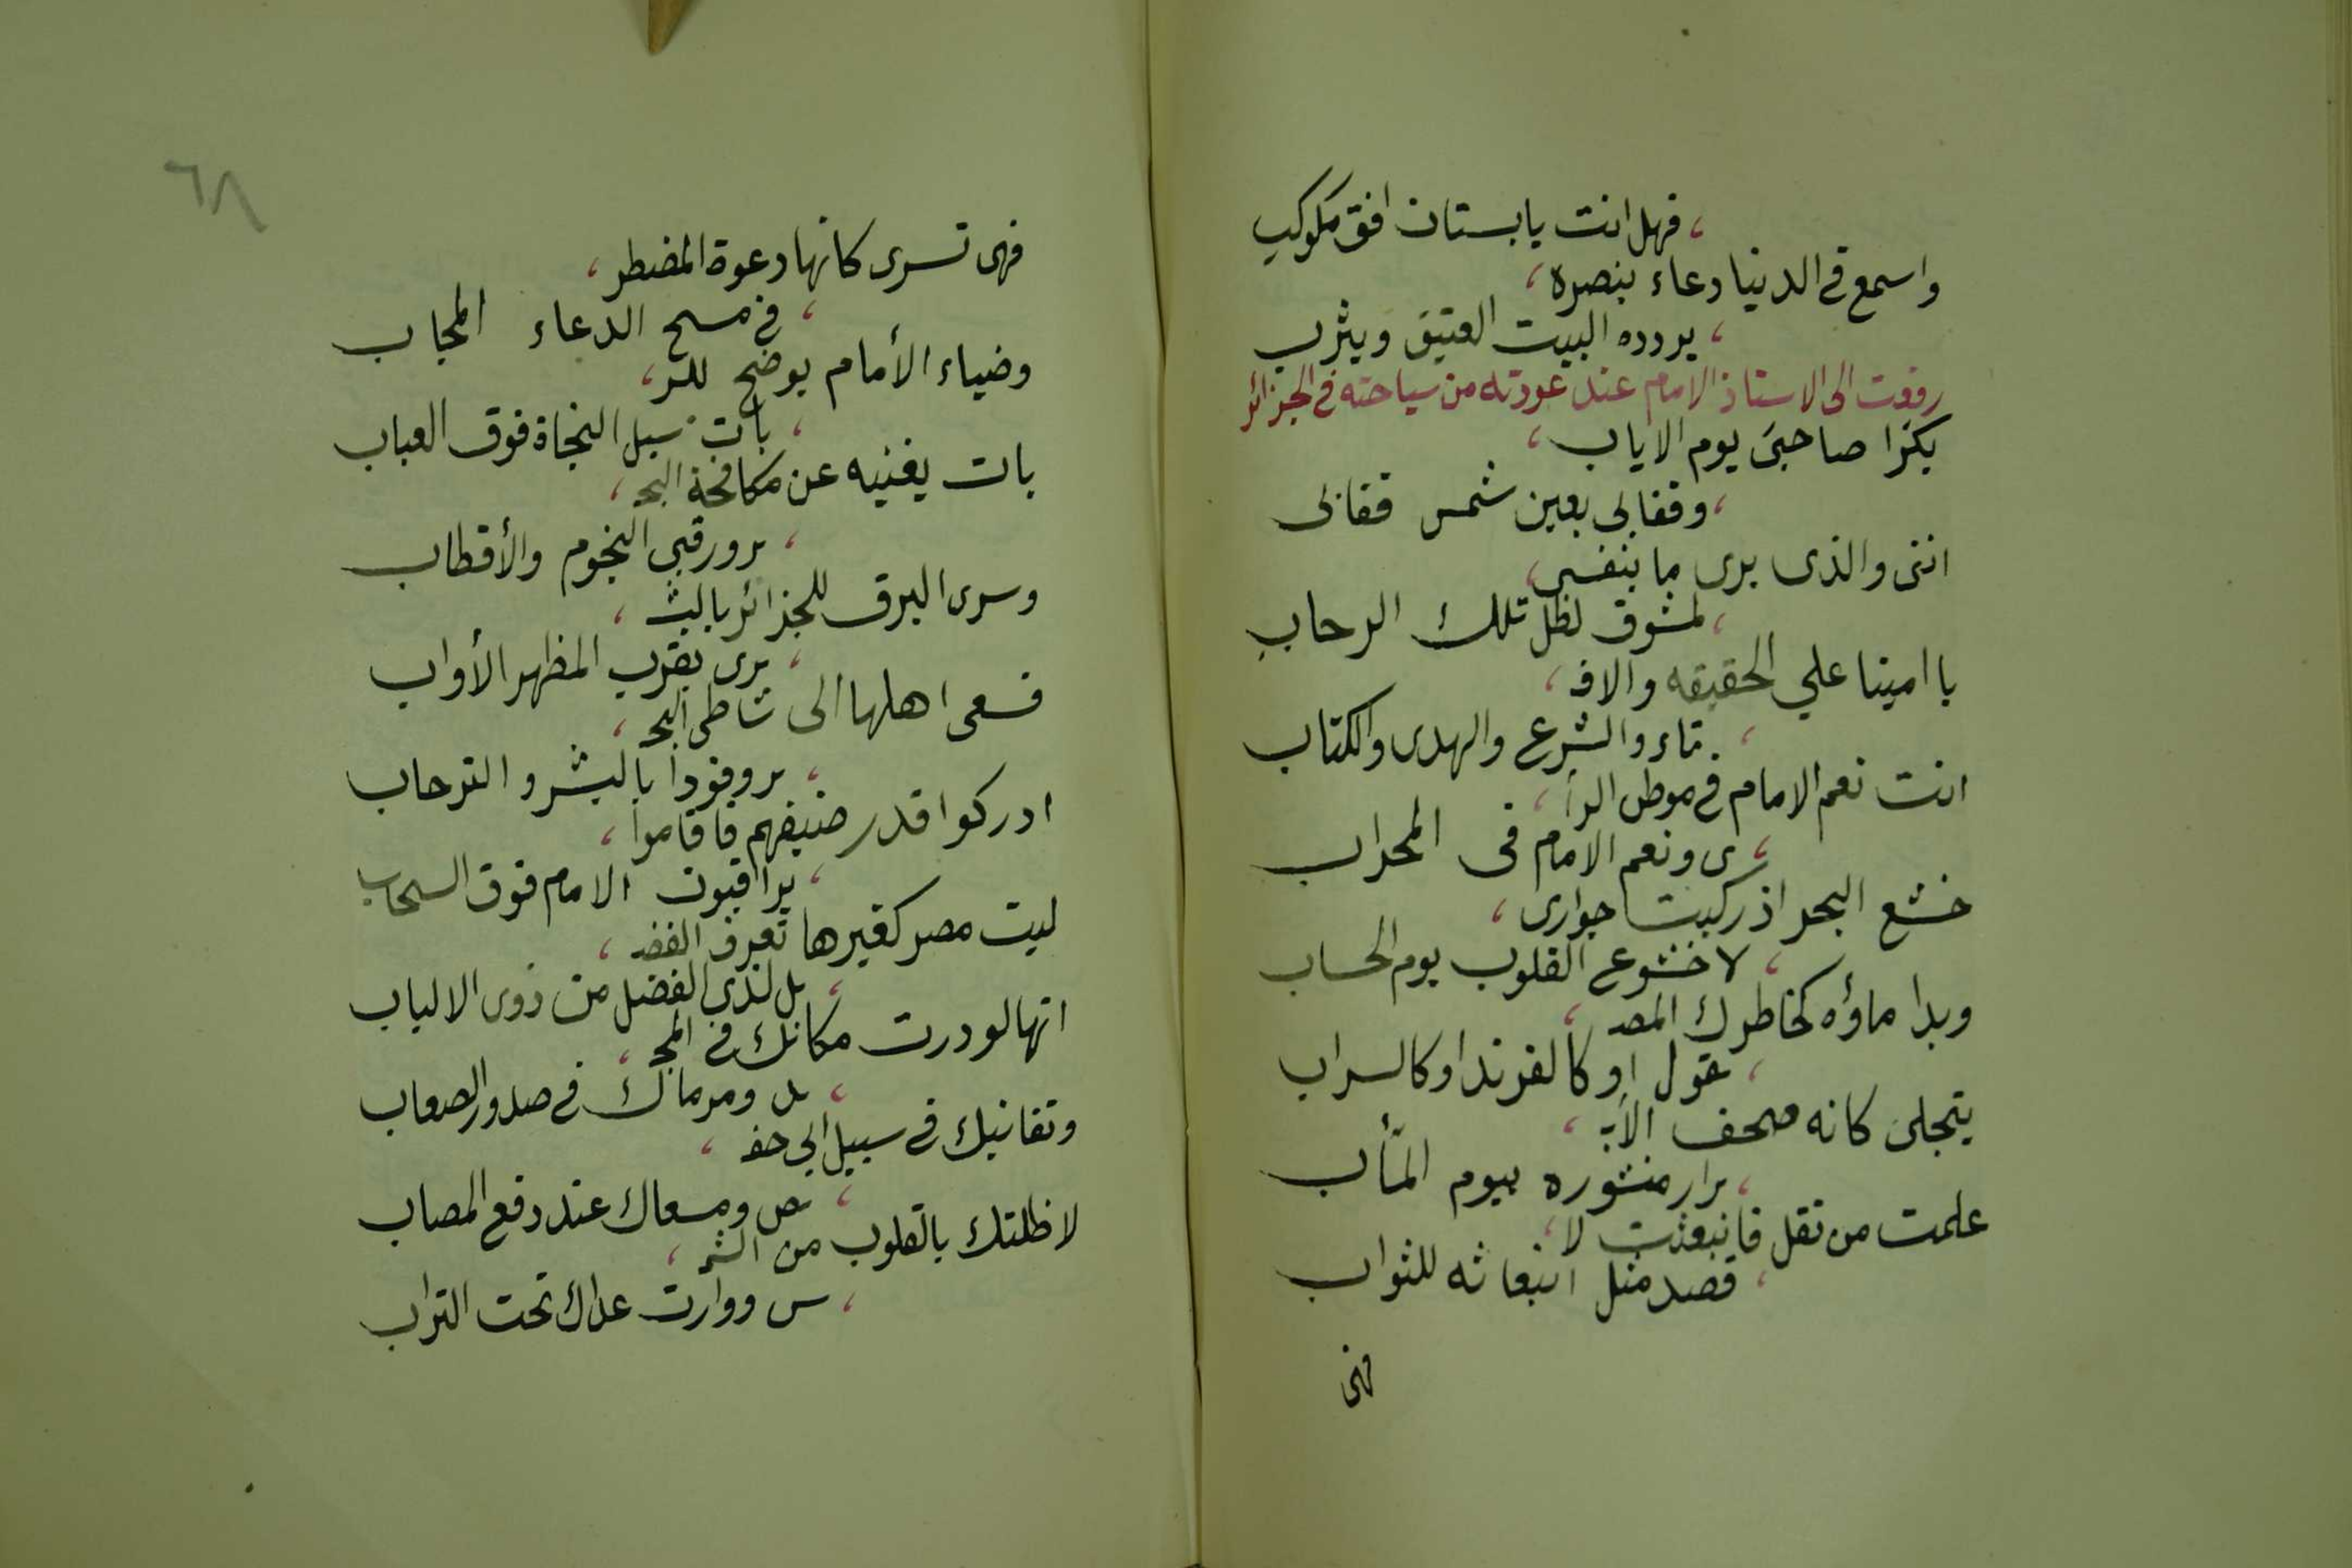 ، فهل انت يابستان افق مكوكب
واسمع في الدنيا دعاء بنصره ،
، يردده البيت العتيق ويثرب
رفعت الى الاستاذ الامام عند عودته من سياحته في الجزائر
بكرا صاحبىَ يوم الاياب ،
، وقفا بى بعين شمس قفا بى
اننى والذى يرى ما بنفسى ،
، لمشوق لظل تلك الرحاب
يا امينا علي الحقيقه والاف ،
، تاء والشرع والهدى والكتاب
انت نعم الامام في موطن الرأ ،
، ى ونعم الامام فى المحراب
خشع البحر اذ ركبت جوارى ،
، لا خشوع القلوب يوم الحساب
وبدا ماؤه كخاطرك المصـ ،
، قول او كالفرند او كالسراب
يتجلى كانه صحف الأبـ ،
، رار منشوره بيوم المآب
علمت من تقل فانبعثت لا ،
، قصد مثل انبعاثه للثواب
فهى
٦٨
فهى تسرى كانها دعوة المضطر ،
، فى مسبح الدعاء المجاب
وضياء الأمام يوضح للر ،
، بان سبل النجاة فوق العباب
بات يغنيه عن مكافحة البحـ ،
، ر ورقبى النجوم والأقطاب
وسرى البرق للجزائر بالبشـ ،
، رى بقرب المطهر الأواب
فسعى اهلها الى شاطى البحـ ،
، ر وفودا بالبشر والترحاب
ادركوا قدر ضيفهم فاقاموا ،
، يراقبون الامام فوق السحاب
ليت مصر كغيرها تعرف الفضـ ،
، ل لذى الفضل من ذوى الالباب
انها لو درت مكانك فى المجـ ،
، د ومرماك في صدور الصعاب
وتفانيك في سبيل ابى حفـ ،
، ص ومسعاك عند دفع المصاب
لاظلتك بالقلوب من الشمـ ،
، س ووارت عداك تحت التراب